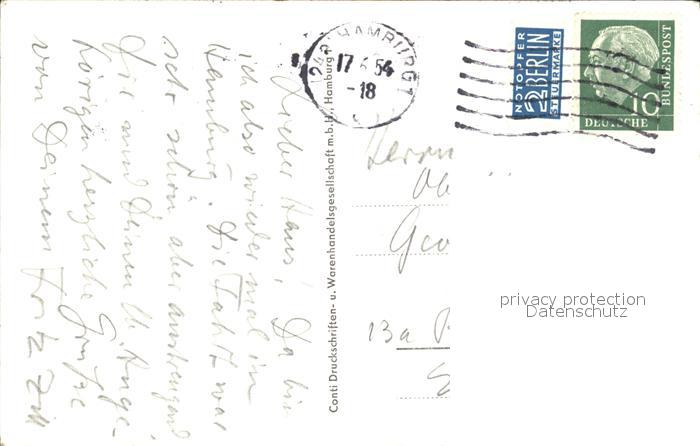 Lieber Hans! Da bin
ich also wieder mal in
Hamburg. Die Fahrt war
sehr schön aber anstrengend
Dir und Deinen lb. Ange-
hörigen herzliche Grüße
von Deinem Fritz
Conti Druckschriften- u. Warenhandelsgesellschaft m.b.H., Hamburg 1
HAMBURG 1
17.6.54
-18
NOTOPFER
2 BERLIN
STEUERMARKE
10
DEUTSCHE
BUNDESPOST
Herrn
Geo
13a
privacy protection
Datenschutz